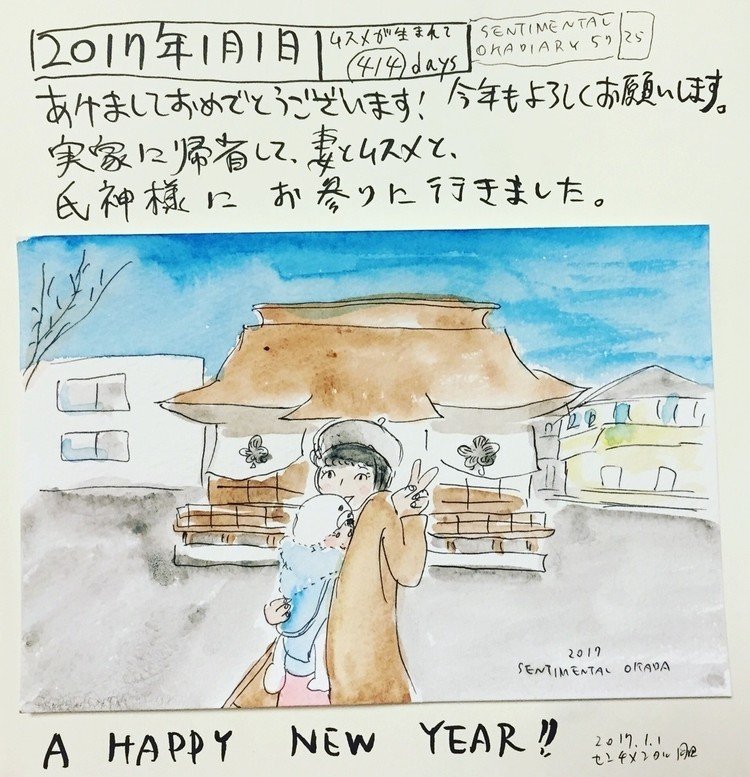 2017年1月1日
ムスメが生まれて
414 days
SENTIMENTAL
OKADIARY 57
25
あけましておめでとうございます! 今年もよろしくお願いします。
実家に帰省して、妻とムスメと、
氏神様に お参りに行きました。
2017
SENTIMENTAL OKADA
A HAPPY NEW YEAR!!
2017.1.1
センチメンタル岡田